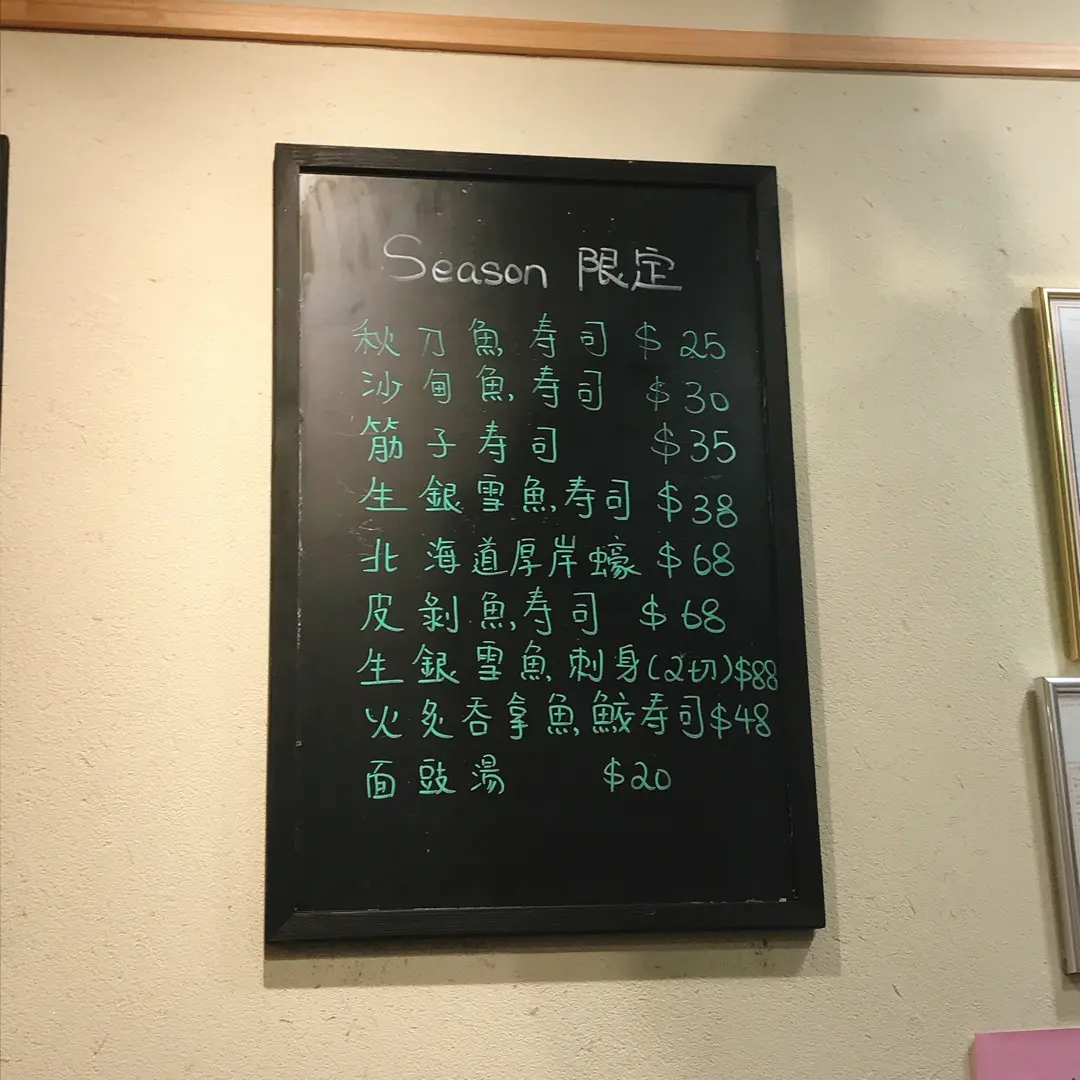 Season 限定
秋刀魚寿司 $25
沙甸魚寿司 $30
筋子寿司 $35
生銀雪魚寿司 $38
北海道厚岸蠔 $68
皮剝魚寿司 $68
生銀雪魚刺身(2切)$88
火炙吞拿魚鮫寿司$48
面豉湯 $20